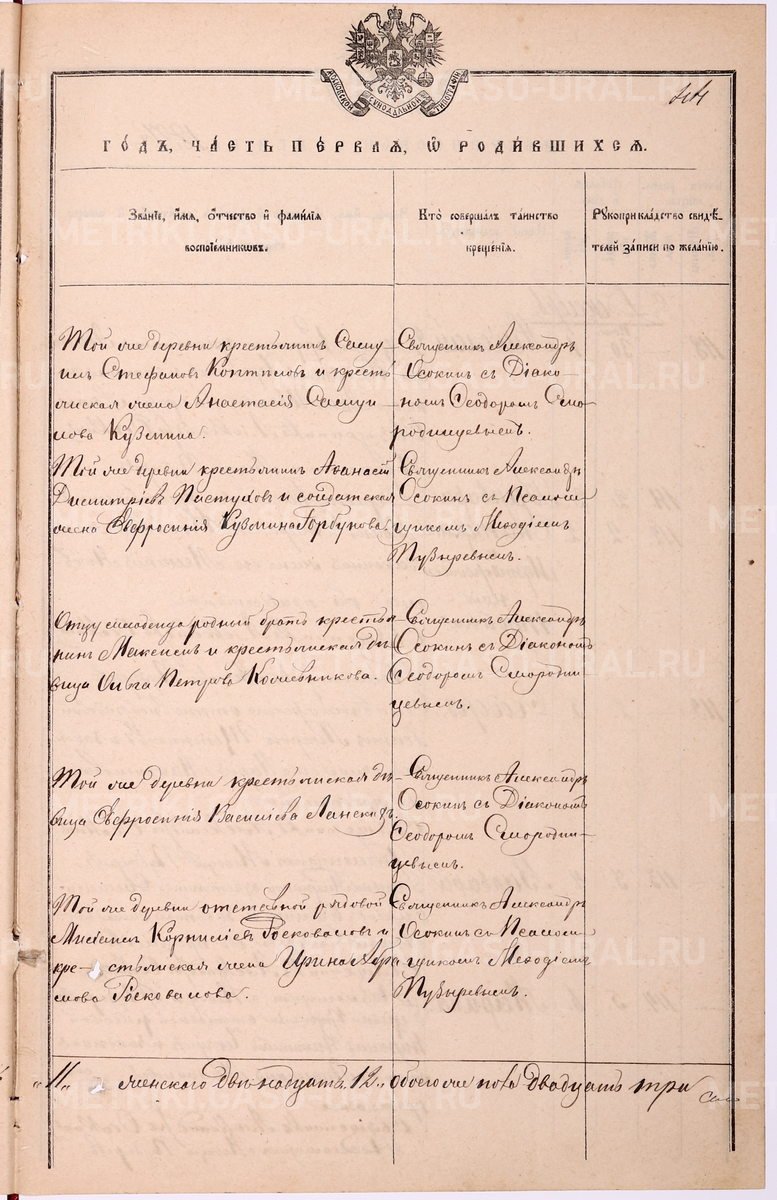 МОСКОВСКОЙ СѴНОДАЛЬНОЙ ТИПОГРАФІИ
44
ГОДЪ, ЧАСТЬ ПЕРВАЯ, Ѡ РОДИВШИХСЯ.
Званіе, имя, отчество и фамилія
воспріемниковъ.
Кто совершалъ таинство
крещенія.
Рукоприкладство свидѣ-
телей записи по желанію.
Той же деревни крестьянинъ Саму-
илъ Стефановъ Коптиловъ и кресть
янская жена Анастасія Самуи
лова Кузмина.
Священникъ Александръ
Осокинъ съ Діако-
номъ Ѳеодоромъ Смо-
родинцевымъ.
Той же деревни крестьянинъ Аѳанасій
Димитріевъ Пастуховъ и солдатская
жена Евфросинія Кузмина Горбунова.
Священникъ Александръ
Осокинъ съ Псаломщ-
щикомъ Меѳодіемъ
Пузыревымъ.
Отцу младенца родный братъ крестья
нинъ Максимъ и крестьянская дѣ-
вица Ольга Петрова Кожевникова.
Священникъ Александръ
Осокинъ съ Діакономъ
Ѳеодоромъ Смородин-
цевымъ.
Той же деревни крестьянская дѣ-
вица Евфросинія Василіева Ланскихъ.
Священникъ Александръ
Осокинъ съ Діакономъ
Ѳеодоромъ Смородин-
цевымъ.
Той же деревни отставной рядовой
Корнилиевъ Росковаловъ и
кре-стьянская жена Ирина Абра
мова Росковалова.
Священникъ Александръ
Осокинъ съ Псалом-
щикомъ Меѳодіемъ
Пузыревымъ.
"11" женскаго двѣнадцать 12, обоего же пола двадцать три